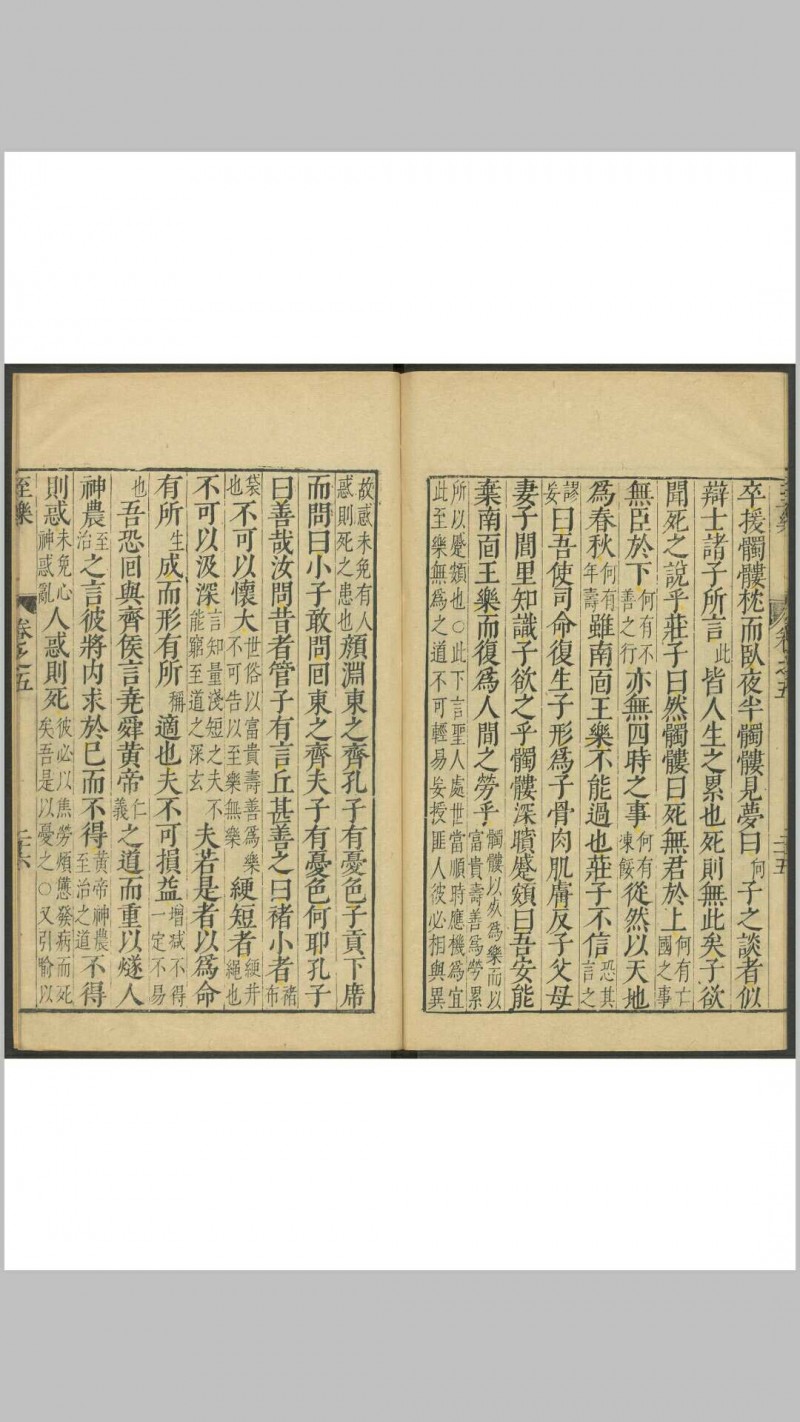 卒援髑髏枕而臥夜半髑髏見夢曰何子之談者似
辯士諸子所言此皆人生之累也死則無此矣子欲
聞死之說乎莊子曰然髑髏曰死無君於上何有亡國之事
無臣於下何有不善之行亦無四時之事何有凍餒從然以天地
為春秋何有年壽雖南面王樂不能過也莊子不信恐其言之
謬妄曰吾使司命復生子形為子骨肉肌膚反子父母
妻子閭里知識子欲之乎髑髏深矉蹙頞曰吾安能
棄南面王樂而復為人間之勞乎髑髏以死為樂而以富貴壽善為勞累
所以蹙頞也○此下言聖人處世當順時應機為宜此至樂無為之道不可輕易妄授匪人彼必相與異
故惑未免有人惑則死之患也顏淵東之齊孔子有憂色子貢下席
而問曰小子敢問回東之齊夫子有憂色何耶孔子
曰善哉汝問昔者管子有言丘甚善之曰褚小者褚布
袋也不可以懷大世俗以富貴壽善為樂不可告以至樂無樂綆短者綆井繩也
不可以汲深言知量淺短之夫不能窮至道之深玄夫若是者以為命
有所生成而形有所稱適也夫不可損益增弑不得一定不易
也吾恐回與齊侯言堯舜黃帝仁義之道而重以燧人
神農至治之言彼將内求於已而不得黃帝神農至治之道不得
則惑未免心神惑亂人惑則死彼必以焦勞煩懲發病而死矣吾是以憂之○又引喻以
至樂 卷之五 二十六